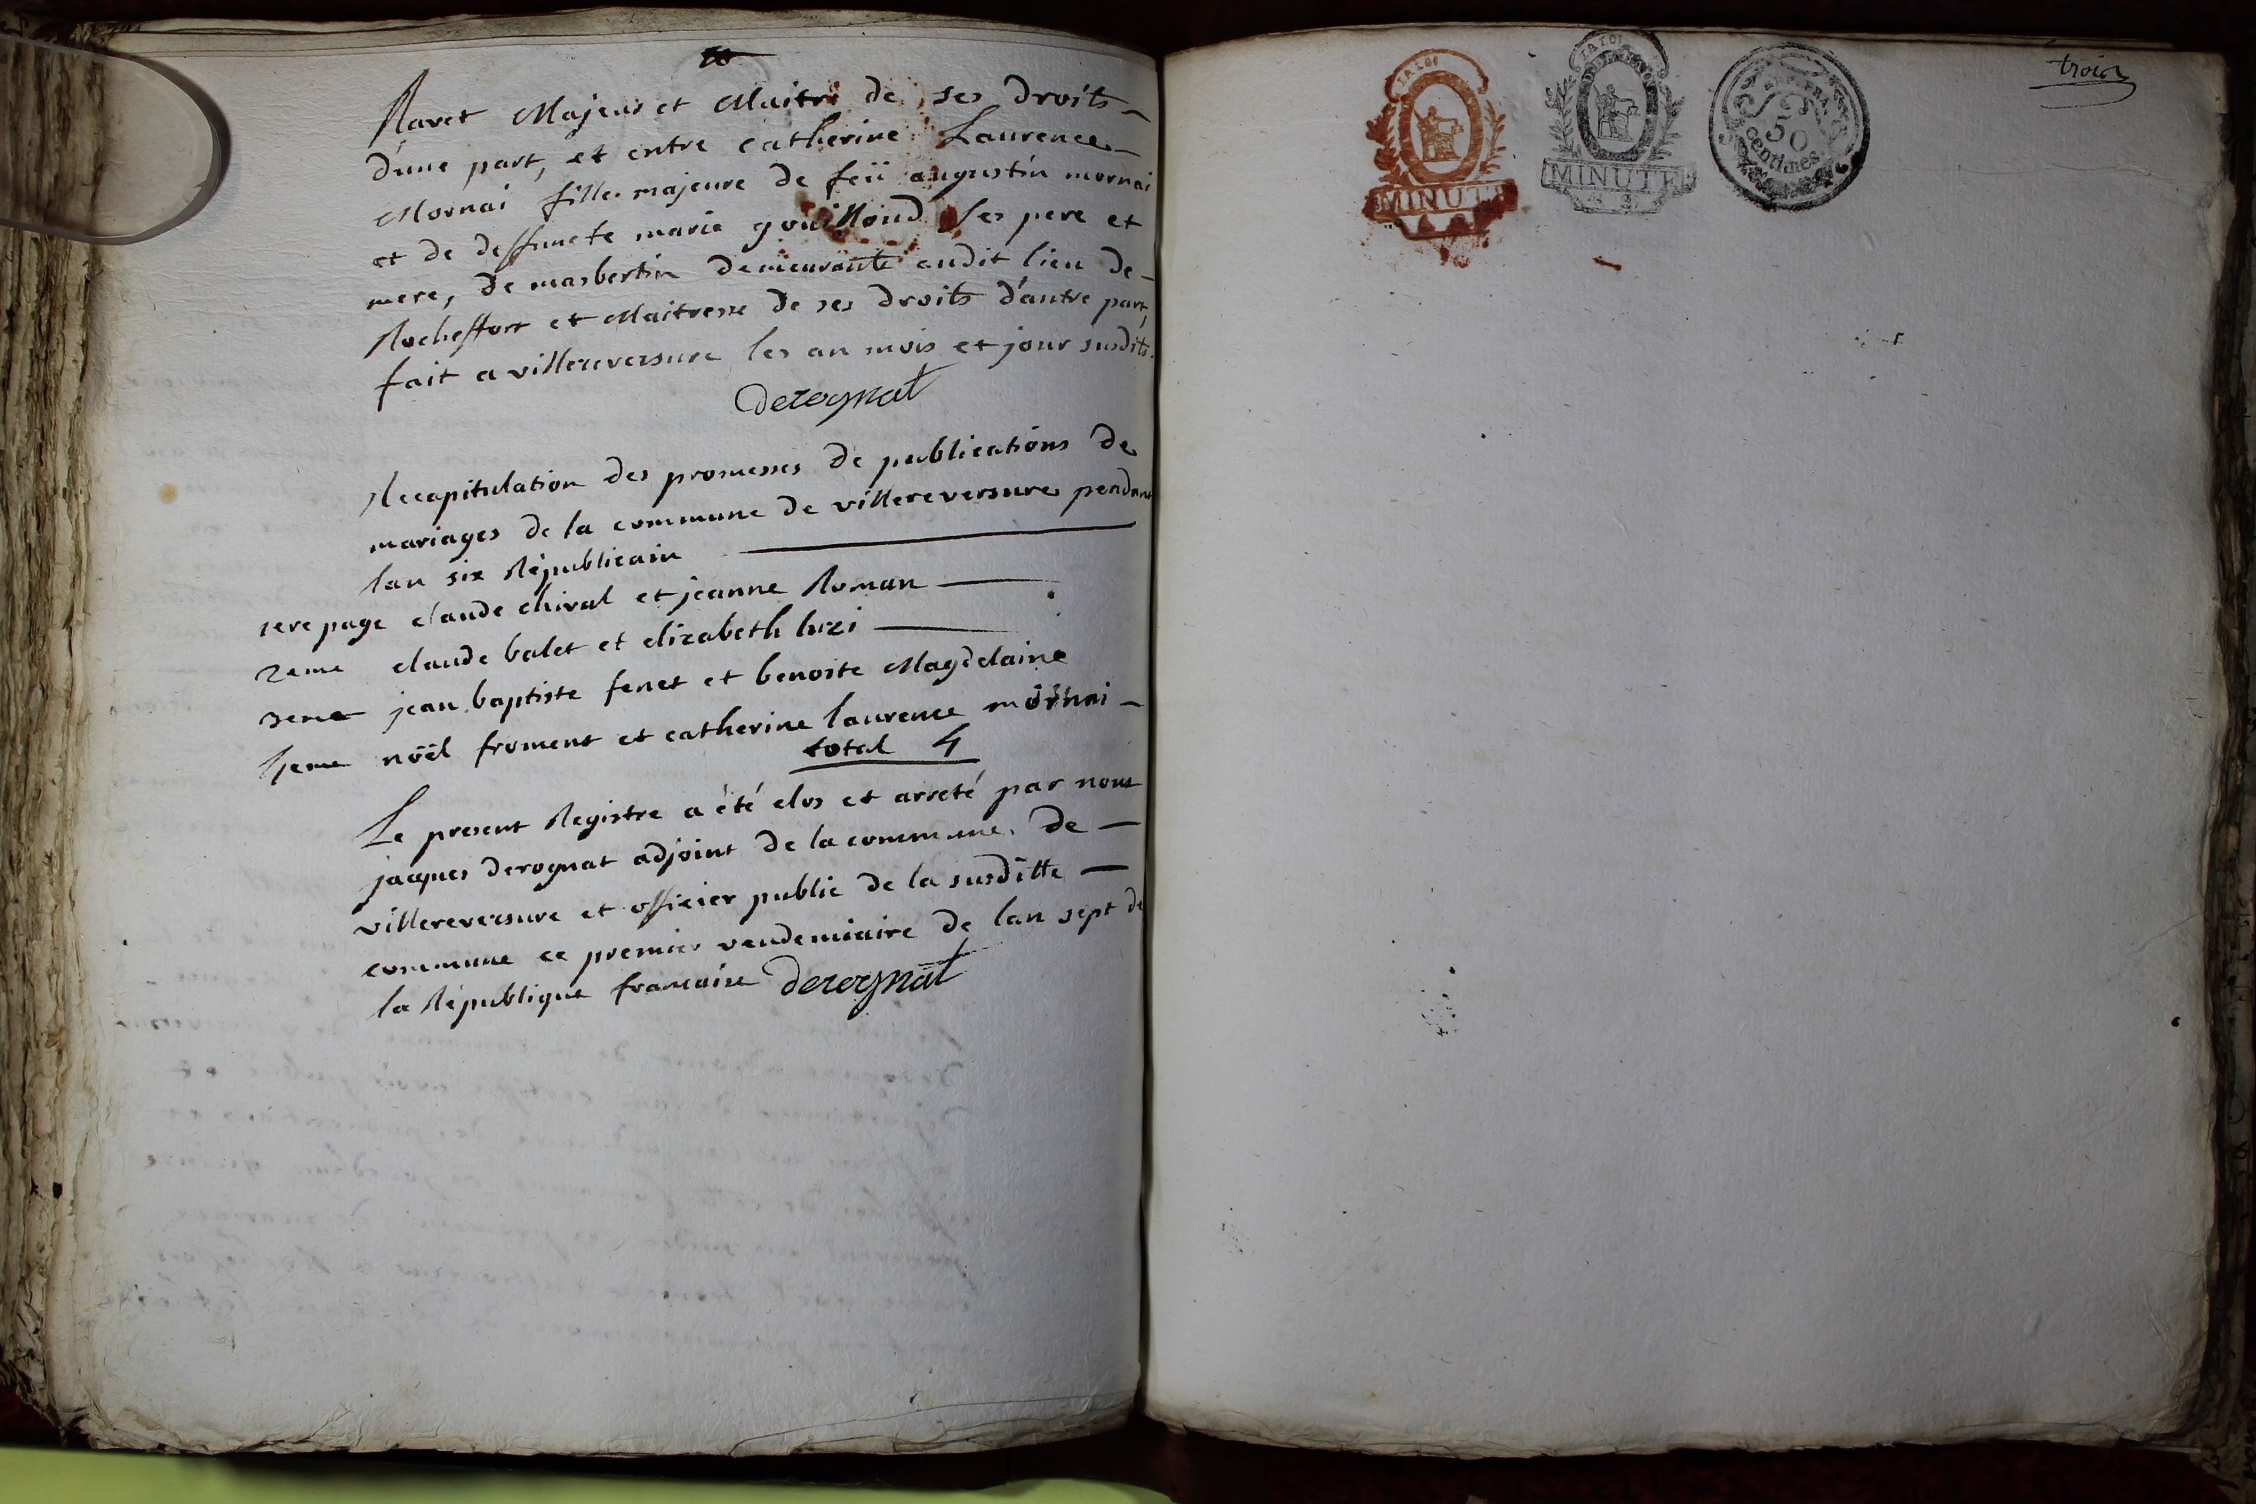 Ravet Majeur et Maitre de ses droits
d'une part, et entre catherine Laurence
Mornai fille majeure de feü augustin mornai
et de deffuncte marie gouilloud ses pere et
mere, de masbertin demeurante audit lieu de
Rocheffort et Maitresse de ses droits d'autre part,
fait a villereversure les an mois et jour susdits.
derognat
Recapitulation des promesses de publications de
mariages de la commune de villereversure pendant
lan six Républicain
1ere page claude chival et jeanne Roman
2eme claude balet et elizabeth luzi
3eme jean baptiste fenet et benoite Magdelaine
4eme nöël froment et catherine laurence mornai
total 4
Le present Registre a été clos et arreté par nous
jacques derognat adjoint de la commune de
villereversure et officier public de la susditte
commune ce premier vendemiaire de lan sept de
la République francaise derognat
LA LOI
MINUTE
LA LOI
MINUTE
50
centimes
trois